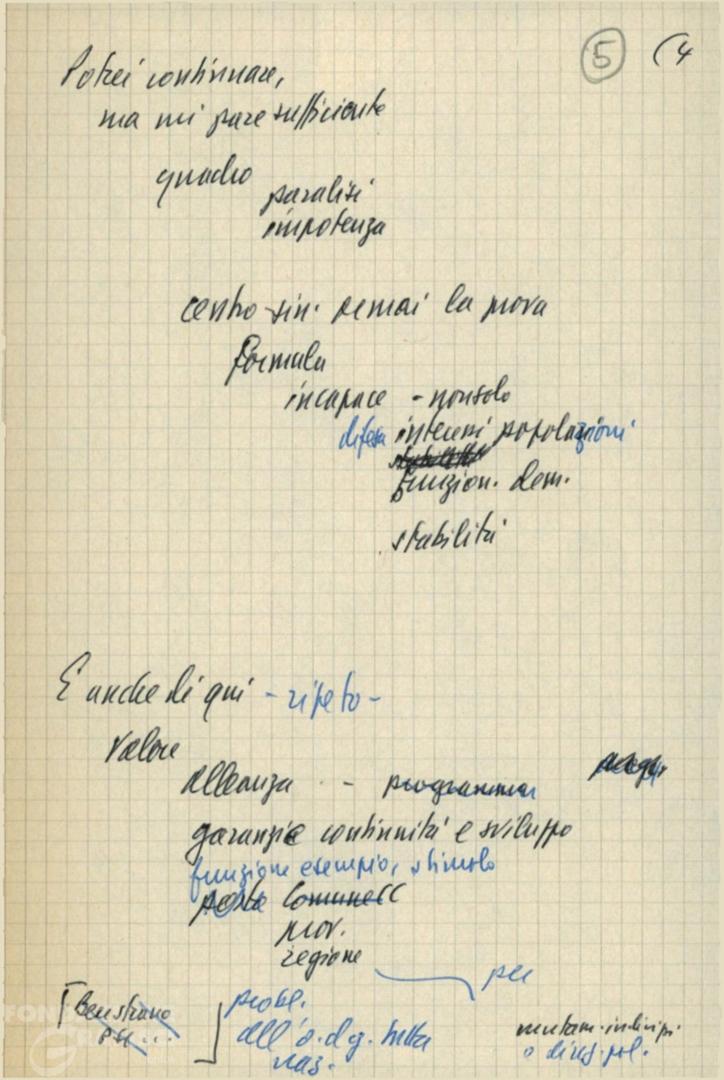 5 (4
Potrei continuare,
ma mi pare sufficiente
quadro
paralisi
impotenza
centro-sin. ormai la prova
formula
incapace - non solo
difesa interessi popolazioni
funzion. dem.
stabilità
E anche di qui - ripeto -
valore
alleanza - programma
garanzie continuità e sviluppo
funzione esempio, stimolo
Comune
prov.
regione
per
[Ben strano
PSI...
probl.
all'o.d.g. tutta
naz.
mutam. indirizzi
o direz. pol.